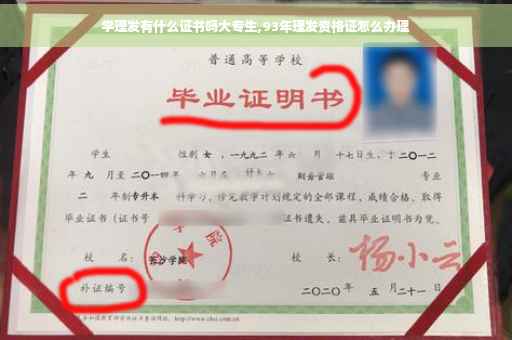 学理发有什么证书吗大专生,93年理发资格证怎么办理
普通高等学校
毕业证明书
学生 性别 女 ,一九九二年 六 月 十七日生,于二〇一二
年 九 月至 二〇一四年 六月在 财务管理 专业
二 年制 专升本 科学习,修完教学计划规定的全部课程,成绩合格,取得
毕业证书(证书号 证书遗失,兹具毕业证明书为凭。
校 名: 长沙学院 校 长: 杨小云
补证编号 二〇二〇年 五 月二十一日